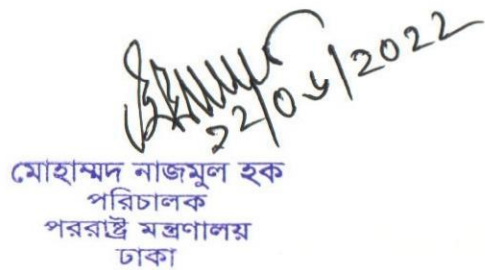 22/06/2022
মোহাম্মদ নাজমুল হক
পরিচালক
পররাষ্ট্র মন্ত্রণালয়
ঢাকা